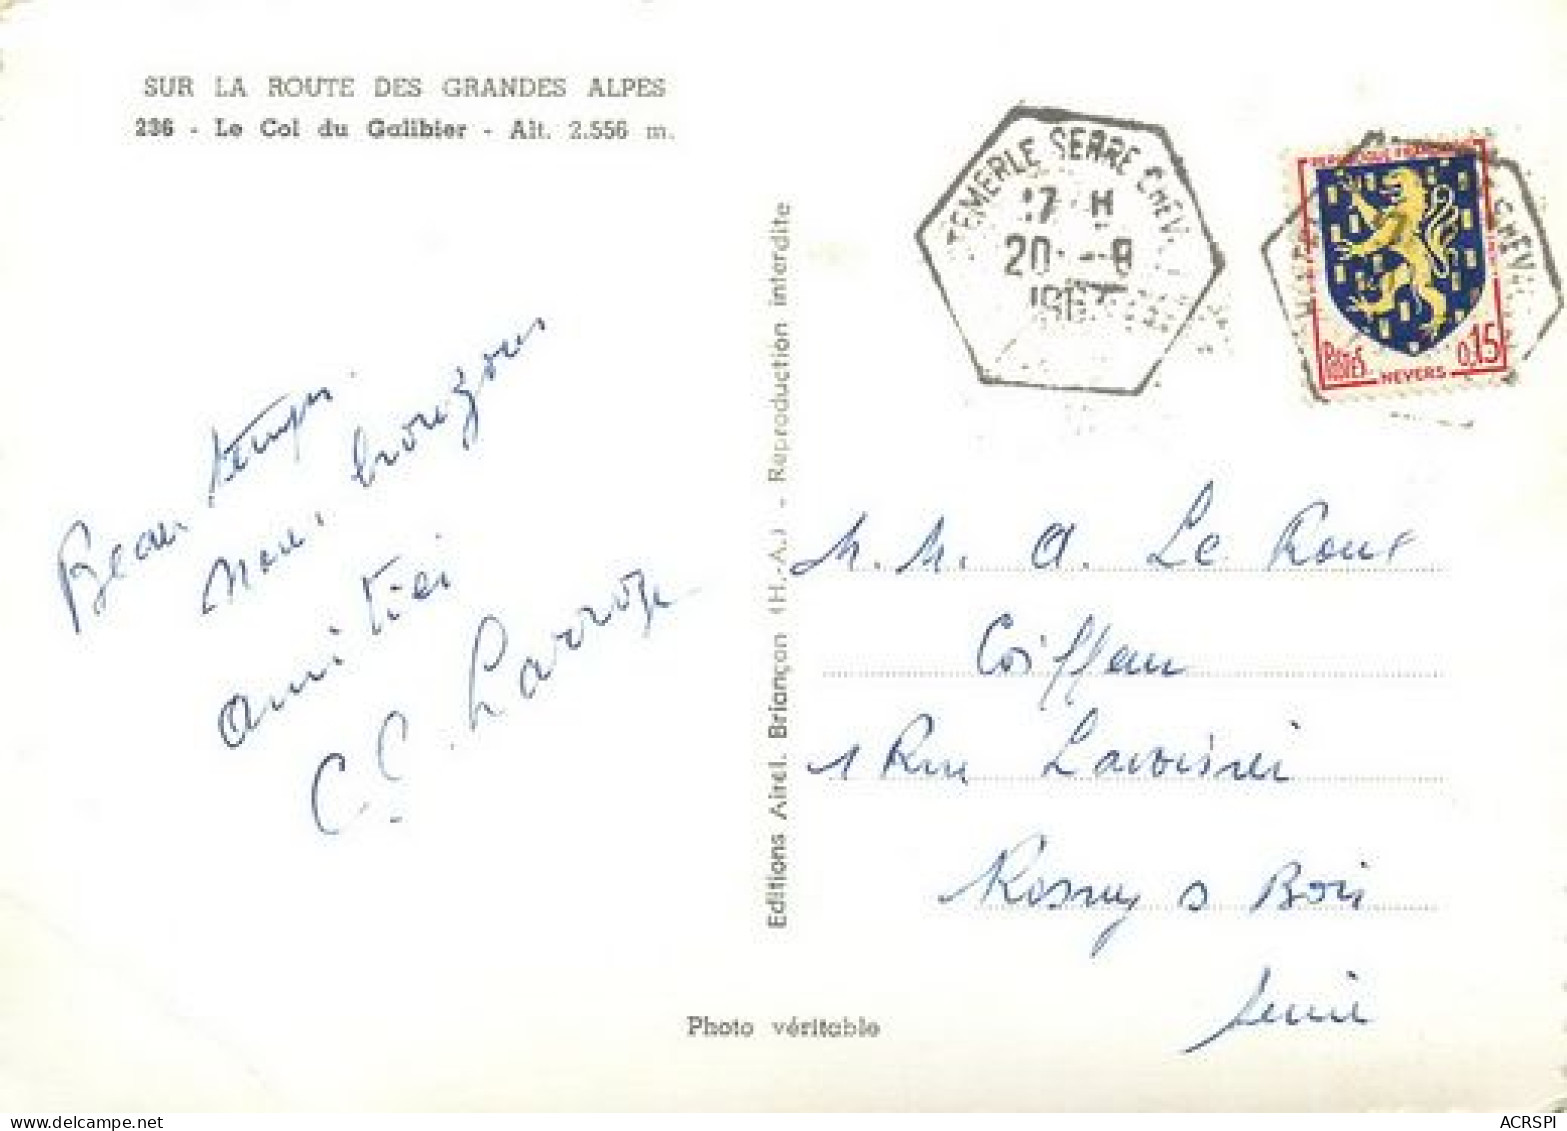 SUR LA ROUTE DES GRANDES ALPES
236 - Le Col du Galibier - Alt. 2.556 m.
TEMERLE SERRE CHEV.
17 H
20 - 8
REPUBLIQUE FRANÇAISE
POSTES
NEVERS
0,15
Beau temps
Nous bronzons
amitiés
C. C. Larroze
Editions Airel. Briançon (H.-A.) - Reproduction interdite
M. M. A. Le Roux
Coiffeur
1 Rue Lavoisier
Rosny s Bois
Seine
Photo véritable
ACRSPI